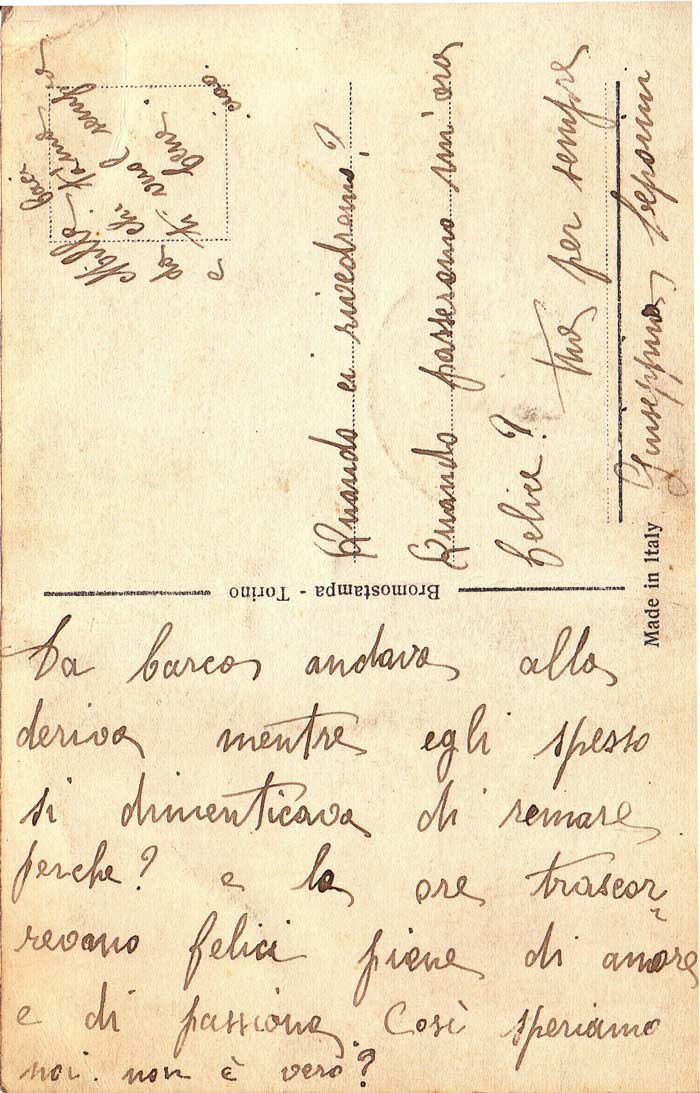 La barca andava alla
deriva mentre egli spesso
si dimenticava di remare
perche? e le ore trascor
revano felici piene di amore
e di passione. Così speriamo
noi. non è vero?
Bromostampa - Torino
Quando ci rivedremo?
Quando passeremo un'ora
felice?
Tua per sempre
Giuseppina Leporini
Made in Italy
Mille baci
da chi t'ama
e ti vuol sempre
bene
ciao